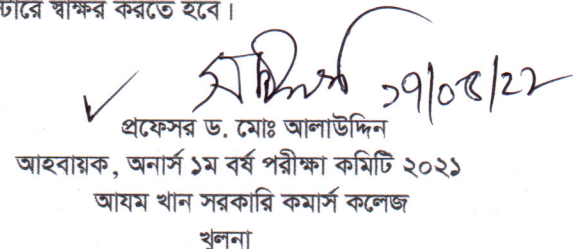 টারে স্বাক্ষর করতে হবে।
১৭/০৫/২২
প্রফেসর ড. মোঃ আলাউদ্দিন
আহবায়ক, অনার্স ১ম বর্ষ পরীক্ষা কমিটি ২০২১
আযম খান সরকারি কমার্স কলেজ
খুলনা